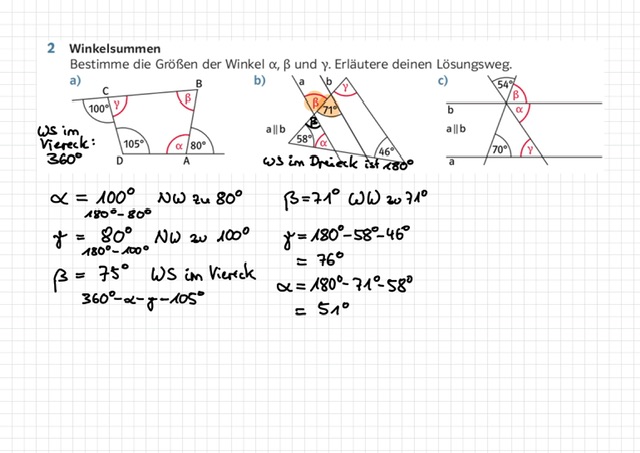 2 Winkelsummen
Bestimme die Größen der Winkel α, β und γ. Erläutere deinen Lösungsweg.
a) b) c)
C B a b γ 54°
100° γ β β 71° β
b α
WS im
Viereck:
360°
105° α 80°
D A
a∥b β
58° α 46°
a∥b
70° γ
a
WS im Dreieck ist 180°
α = 100° NW zu 80°
180°-80°
γ = 80° NW zu 100°
180°-100°
β = 75° WS im Viereck
360°-α-γ-105°
β=71° WW zu 71°
γ=180°-58°-46°
= 76°
α=180°-71°-58°
= 51°